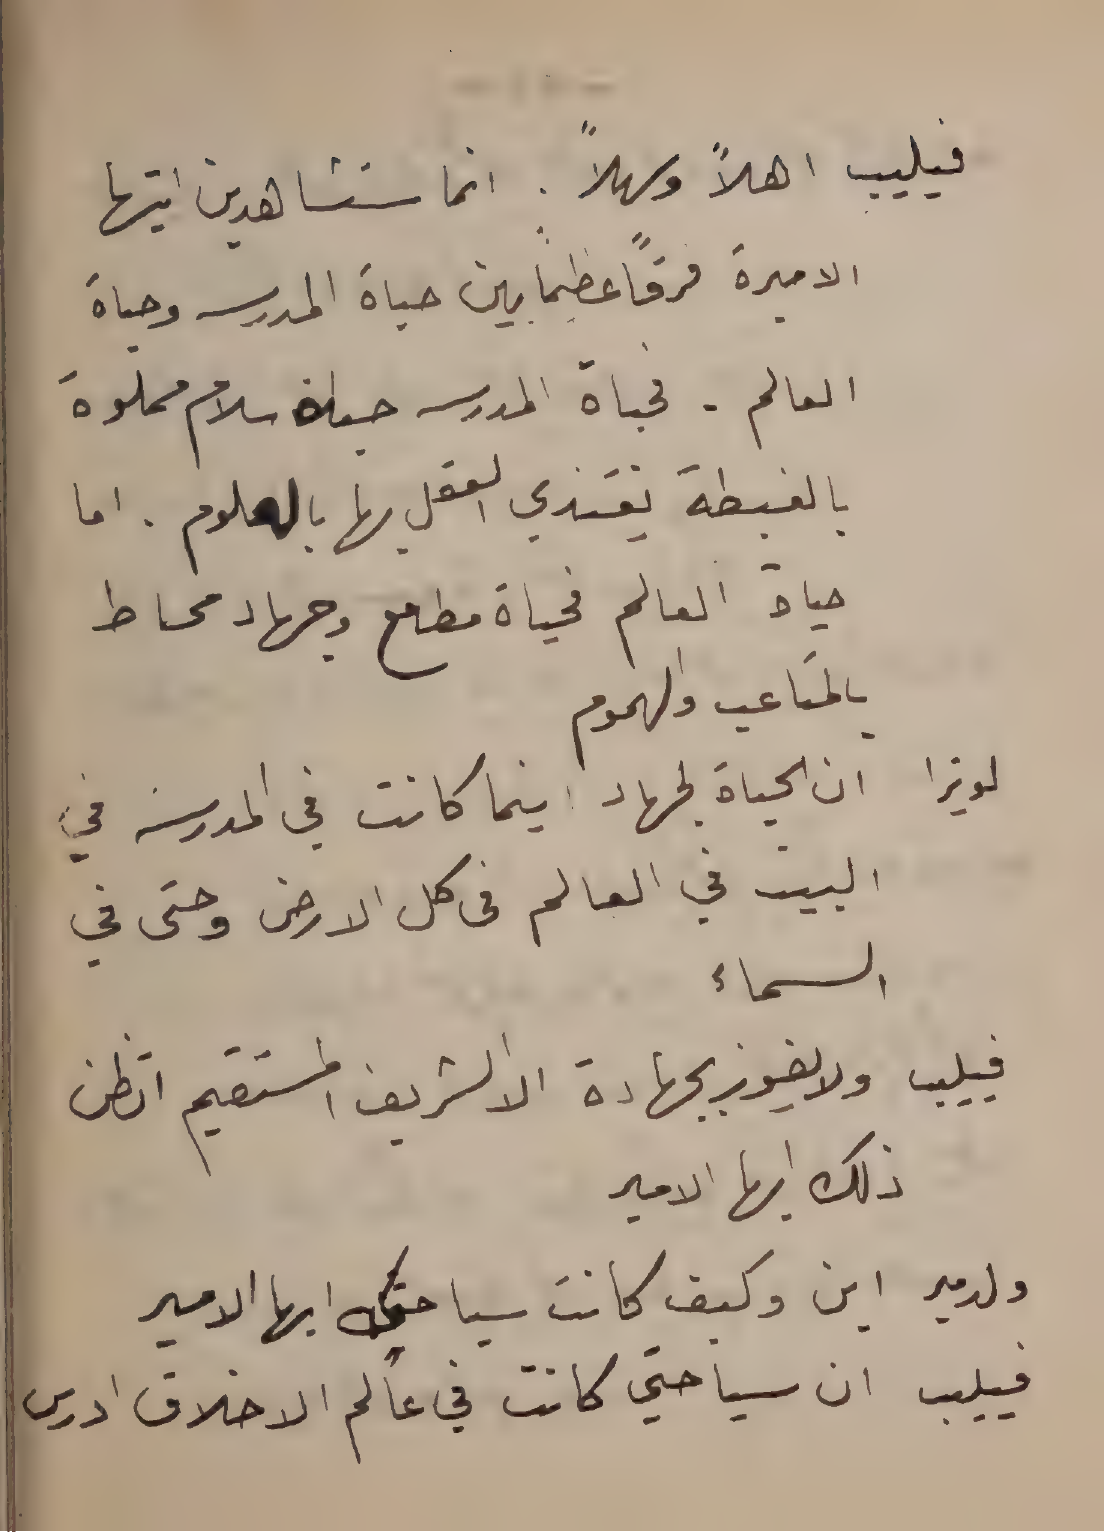 فيليب اهلاً وسهلاً . انما ستشاهدين ايتها
الاميرة فرقاً عظيماً بين حياة المدرسه وحياة
العالم . فحياة المدرسه حياة سلام مملوة
بالغبطة يغتذي العقل بها بالعلوم . اما
حياة العالم فحياة مطامع وجهاد محاط
بالمتاعب والهموم
لويزا ان الحياة لجهاد اينما كانت في المدرسة في
البيت في العالم في كل الارض وحتى في
السماء
فيليب ولا يفوز بجهاده الا الشريف المستقيم اتظن
ذلك ايها الامير
ولدمير اين وكيف كانت سياحتك ايها الامير
فيليب ان سياحتي كانت في عالم الاخلاق ادرس